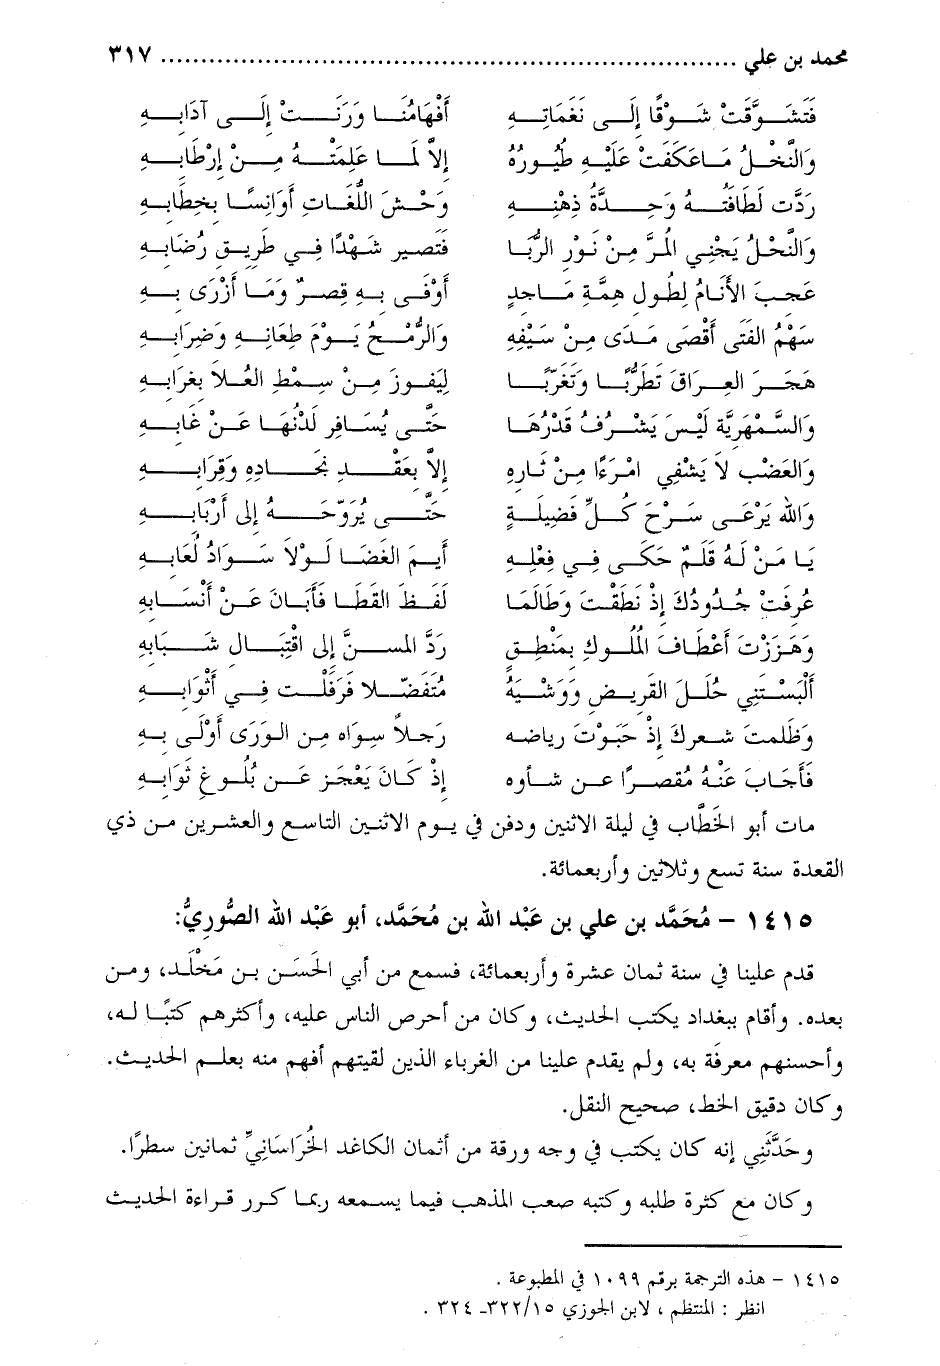 محمد بن علي ........................................................................ ٣١٧
فَتَشَوَّقَتْ شَوْقًا إِلَى نَغَمَاتِهِ أَفْهَامُنَا وَرَنَتْ إِلَى آدَابِهِ
وَالنَّخلُ مَا عَكَفَتْ عَلَيْهِ طُيُورُهُ إِلاَّ لَمَا عَلِمَتْهُ مِنْ إرْطَابِهِ
رَدَّت لَطَافَتُهُ وَحِدَّةُ ذِهْنِهِ وَحْشَ اللُّغَاتِ أَوَانِسًا بِخِطَابِهِ
وَالنَّحْلُ يَجْنِي المُرَّ مِنْ نَوْرِ الرُّبَا فَتَصِير شَهْدًا فِي طَرِيقِ رُضَابِهِ
عَجِبَ الأَنَامُ لِطُول هِمَّةِ مَاجِدٍ أَوْفَى بِهِ قِصرٌ وَمَا أَزْرَى بِهِ
سَهْمُ الفَتَى أَقْصَى مَدًى مِنْ سَيْفِهِ وَالرُّمْحُ يَوْمَ طِعَانِهِ وَضِرَابِهِ
هَجَرَ العِرَاقَ تَطَرُّبًا وَتَغَرُّبًا لِيَفُوزَ مِنْ سِمْطِ العُلاَ بِغَرَابِهِ
وَالسَّمْهَرِيَّة لَيْسَ يَشْرُفُ قَدْرُهَا حَتَّى يُسَافِر لَدْنُهَا عَنْ غَابِهِ
وَالعَضْب لاَ يَشْفِي امْرَءًا مِنْ ثَارِهِ إِلاَّ بِعَقْدِ نِجَادِهِ وَقِرَابِهِ
وَالله يَرْعَى سَرْحَ كُلِّ فَضِيلَةٍ حَتَّى يُرَوِّحَهُ إلى أَرْبَابِهِ
يَا مَنْ لَهُ قَلَمٌ حَكَى فِي فِعْلِهِ أَيمَ الغَضَا لَوْلاَ سَوَادُ لُعَابِهِ
عُرِفَتْ جُدُودُكَ إِذْ نَطَقْتَ وَطَالَمَا لَفَظَ القَطَا فَأَبَانَ عَنْ أَنْسَابِهِ
وَهَزَزْتَ أَعْطَافَ المُلُوكِ بِمَنْطِقٍ رَدَّ المسنَّ إلى اقْتِبَالِ شَبَابِهِ
أَلْبَسْتَنِي حُلَلَ القَرِيضِ وَوَشْيَهُ مُتَفَضِّلاً فَرَفَلْتُ فِي أَثْوَابِهِ
وَظَلمتَ شعرك إِذْ حَبَوْتَ رياضه رَجلاً سِوَاه مِن الوَرَى أَوْلَى بِهِ
فَأَجَابَ عَنْهُ مُقصرًا عن شأوه إِذْ كَانَ يَعْجَز عَن بُلُوغِ ثَوَابِهِ
مات أبو الخطَّاب في ليلة الاثنين ودفن في يوم الاثنين التاسع والعشرين من ذي
القعدة سنة تسع وثلاثين وأربعمائة.
١٤١٥ – مُحَمَّد بن علي بن عَبْد الله بن مُحَمَّد، أبو عَبْد الله الصُّورِيُّ:
قدم علينا في سنة ثمان عشرة وأربعمائة، فسمع من أبي الحَسَن بن مَخْلَد، ومن
بعده. وأقام ببغداد يكتب الحديث، وكان من أحرص الناس عليه، وأكثرهم كتبًا له،
وأحسنهم معرفة به، ولم يقدم علينا من الغرباء الذين لقيتهم أفهم منه بعلم الحديث.
وكان دقيق الخط، صحيح النقل.
وحَدَّثَنِي إنه كان يكتب في وجه ورقة من أثمان الكاغد الخُرَاسَانِيِّ ثمانين سطرًا.
وكان مع كثرة طلبه وكتبه صعب المذهب فيما يسمعه ربما كرر قراءة الحديث
١٤١٥ – هذه الترجمة برقم ١٠٩٩ في المطبوعة .
انظر : المنتظم ، لابن الجوزي ١٥/٣٢٢- ٣٢٤ .